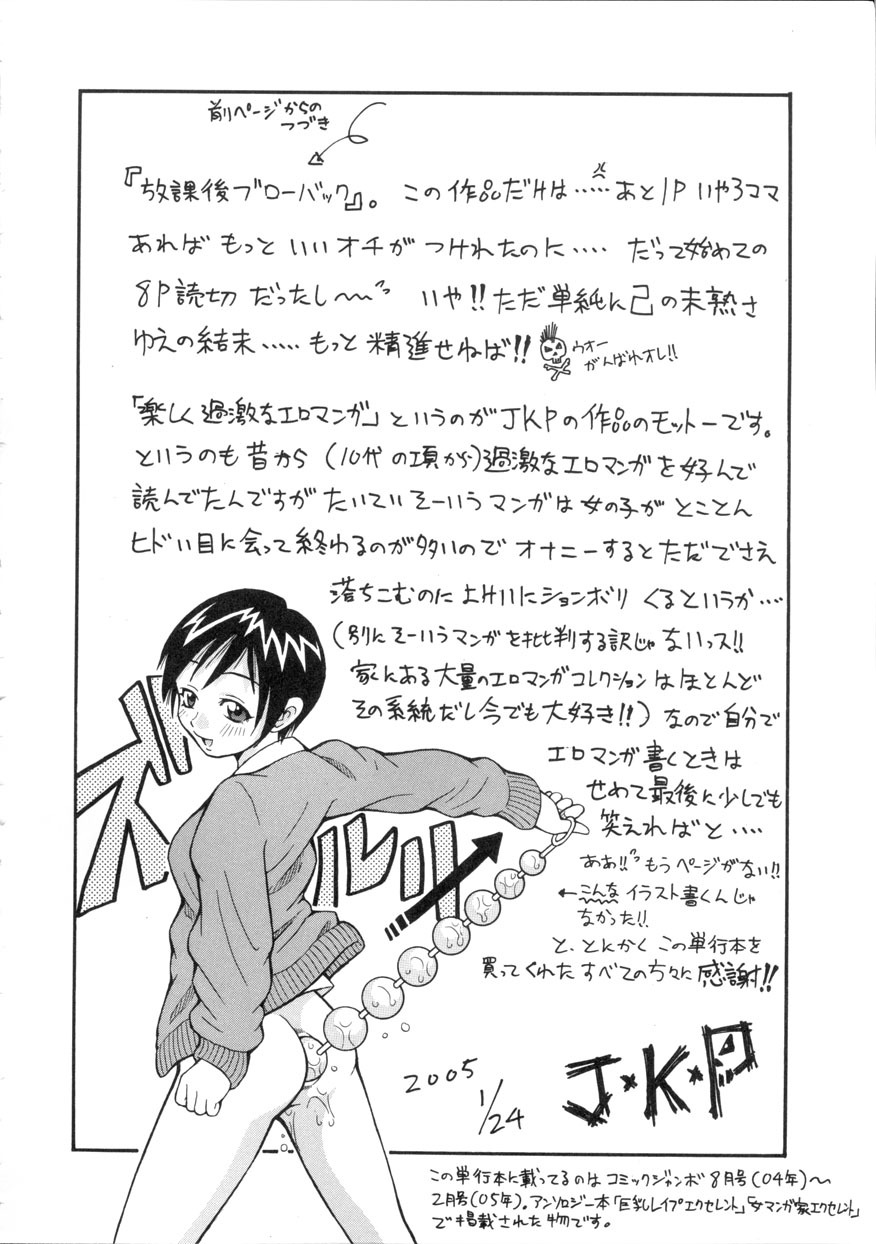 前ページからの
つづき
『放課後ブローバック』。この作品だけは……あと1P いや3コマ
あればもっといいオチがつけれたのに…. だって始めての
8P読切だったし〜〜 いや!!ただ単純に己の未熟さ
ゆえの結末….. もっと精進せねば!!
ウオー
がんばれオレ!!
「楽しく過激なエロマンガ」というのがJKPの作品のモットーです。
というのも昔から(10代の項から)過激なエロマンガを好んで
読んでたんですがたいていそーいうマンガは女の子がとことん
ヒドい目に会って終わるのが多いのでオナニーするとただでさえ
落ちこむのによけいにションボリくるというか….
(別にそーいうマンガを批判する訳じゃないっス!!
家にある大量のエロマンガコレクションはほとんど
その系統だし今でも大好き!!)なので自分で
エロマンガ書くときは
せめて最後に少しでも
笑えればと….
ああ!!もうページがない!!
←こんなイラスト書くんじゃ
なかった!!
と、とにかくこの単行本を
買ってくれたすべての方々に感謝!!
ズルルリ
2005
1/24
J・K・P
この単行本に載ってるのはコミックジャンボ8月号(04年)〜
2月号(05年)。アンソロジー本「巨乳レイプエクセレント」「女マンガ家エクセレント」
で掲載された物です。